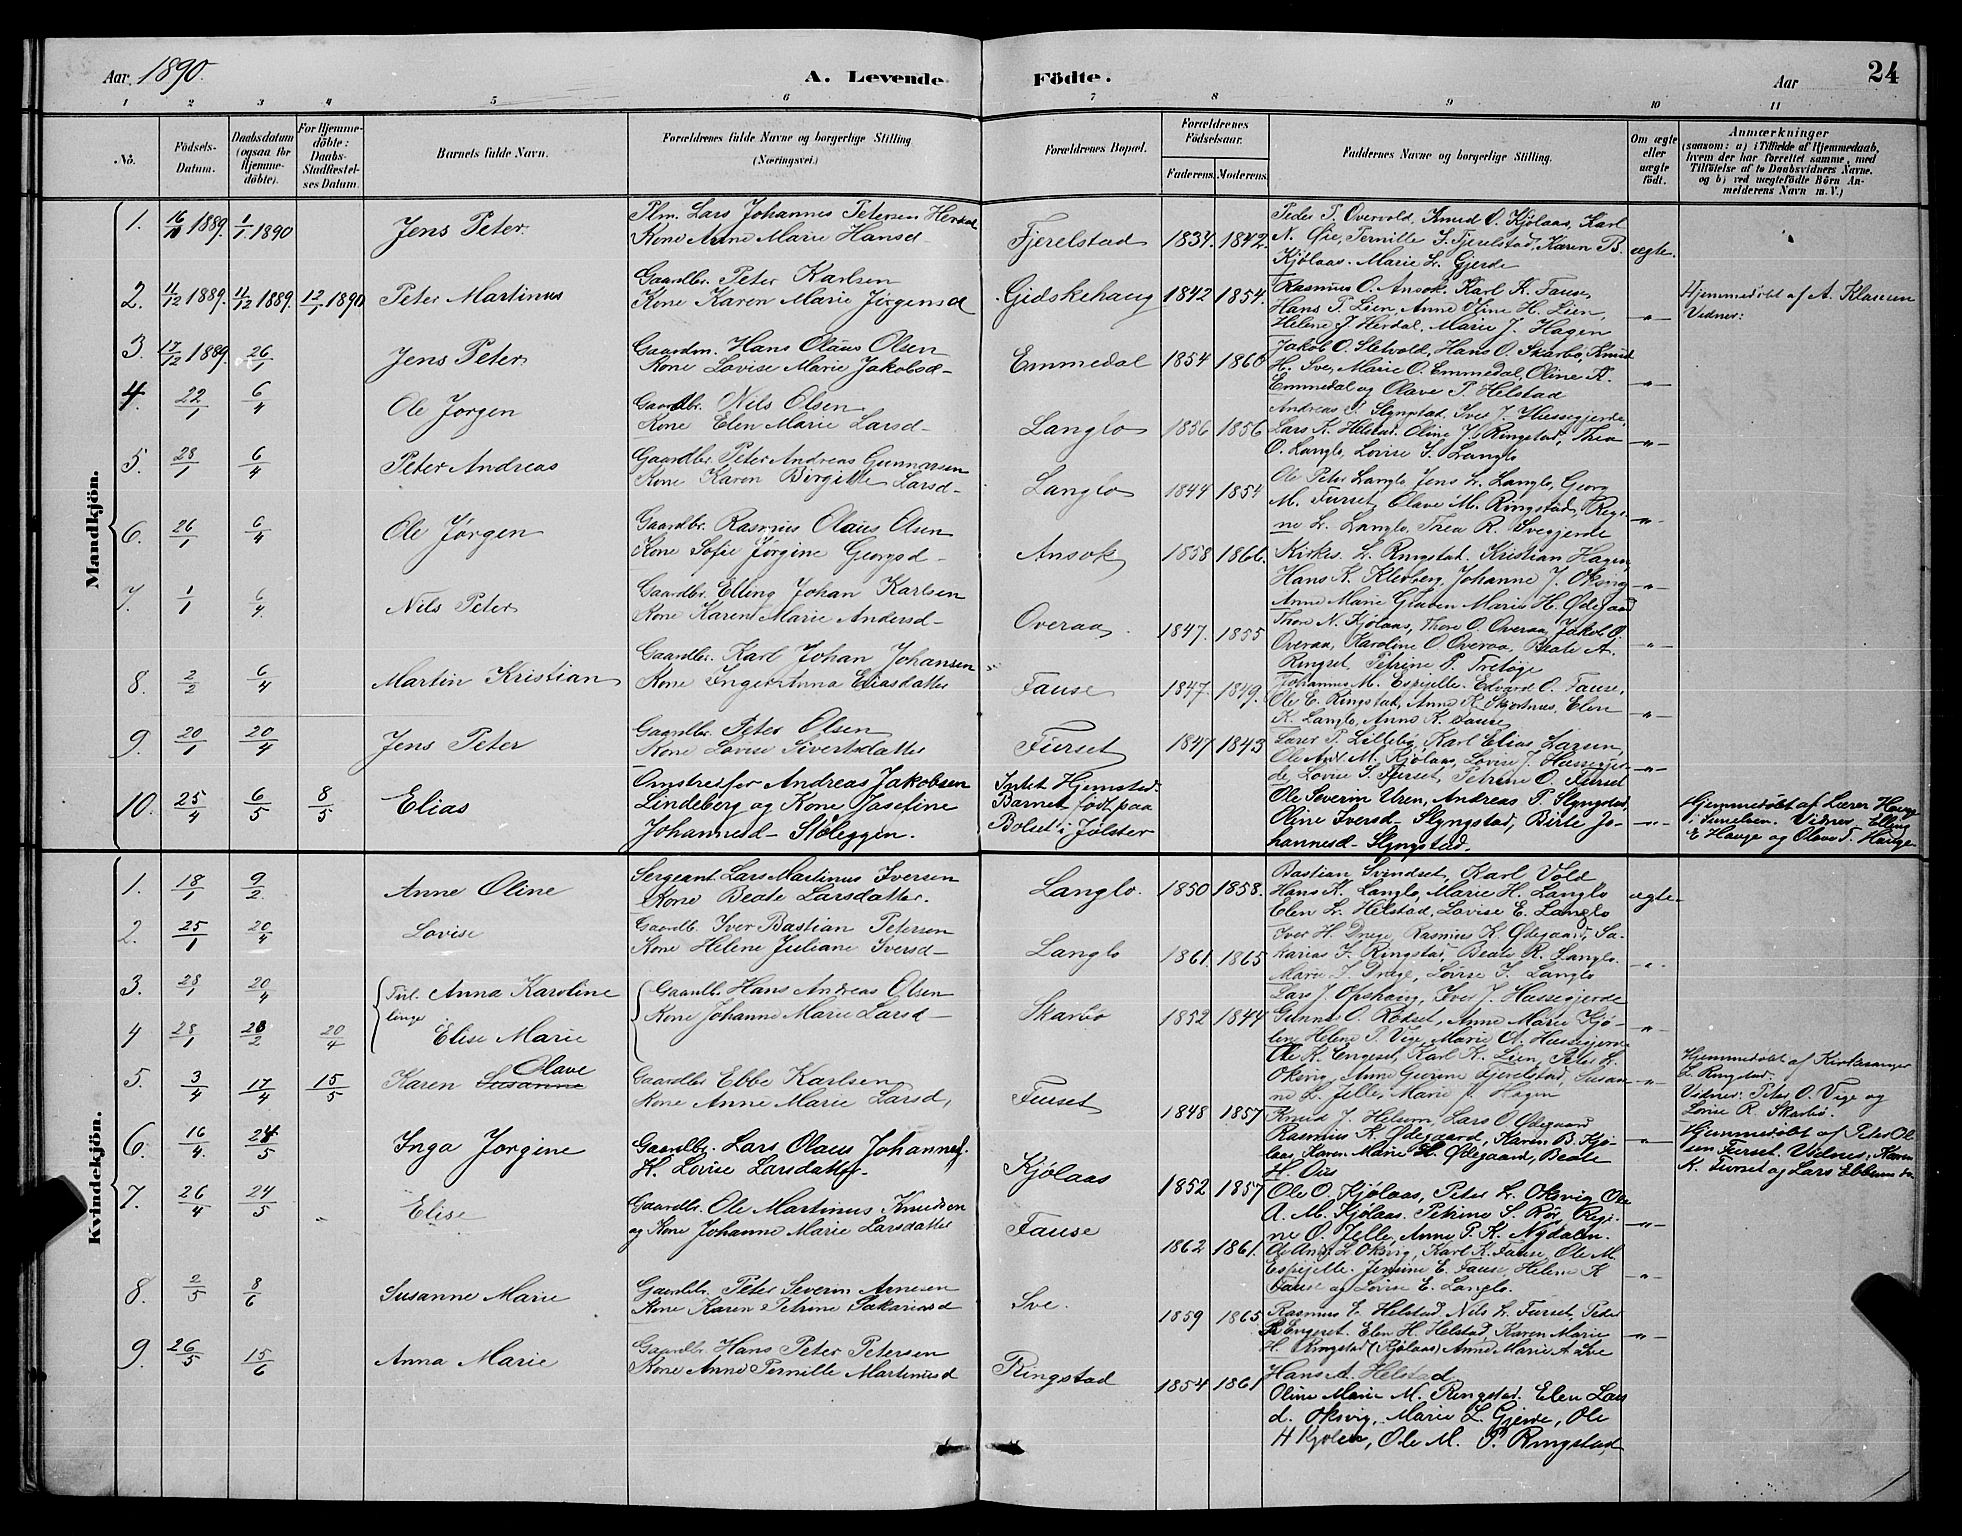 Aar 1890. A. Levende Födte. Aar 24
1 2 3 4 5 6 7 8 9 10 11
No. Födsels-Datum. Daabsdatum (ogsaa for Hjemmedöbte). For Hjemmedöbte: Daabs-Stadfæstelses Datum. Barnets fulde Navn. Forældrenes fulde Navne og borgerlige Stilling (Næringsvei.) Forældrenes Bopæl. Forældrenes Födselsaar. Faderens. Moderens. Faddernes Navne og borgerlige Stilling. Om ægte eller uægte födt. Anmærkninger (saasom: a) i Tilfælde af Hjemmedaab, hvem der har forrettet samme, med Tilföielse af to Daabsvidners Navne. og b) ved uægtefödte Börn Anmelderens Navn m. V.)
Mandkjön.
1. 16/11 1889. 1/1 1890 Jens Peter. Plm. Lars Johannes Petersen Herdal Kone Anne Marie Hansd- Fjerelstad 1834. 1842. Peder P. Overvold, Knud O. Kjölaas, Karl
N. Øie, Pernille S. Fjerelstad, Karen B. ægte.
Kjölaas. Marie L. Gjerde
2. 11/12 1889. 11/12 1889. 12/1 1890 Peter Martinus Gaardbr. Peter Karlsen Kone Karen Marie Jörgensd Gidskehaug 1842 1854. Rasmus O. Ansok. Karl K. Fause, Hjemmedöbt af A. Klausen
Hans P. Lien, Anne Oline H. Lien, -"- Vidner:
Helene J. Herdal, Marie J. Hagen
3. 17/12 1889. 26/1 Jens Peter Gaardm. Hans Olaus Olsen Kone Lovise Marie Jakobsd- Emmedal 1854 1860 Jakob O. Sletvold, Hans O. Skarbö, Knud
H. Sve, Marie O. Emmedal, Oline K. -"-
Emmedal og Olave P. Helstad
4. 22/1 6/4 Ole Jörgen Gaardbr. Nils Olsen Kone Elen Marie Larsd- Langlo 1856 1856 Andreas P. Slyngstad. Iver J. Hussegjerde,
Lars K. Helstad. Oline J. Ringstad, Thea -"-
O. Langlo, Lovise J. Langlo
5. 28/1 6/4 Peter Andreas Gaardbr. Peter Andreas Gunnarsen Kone Karen Birgitte Larsd- Langlo 1844 1854 Ole Peter Langlo Jens L. Langlo, Georg
M. Furset, Olave M. Ringstad, Regi- -"-
ne L. Langlo, Thea R. Svegjerde
6. 26/1 6/4 Ole Jørgen Gaardbr. Rasmus Olaus Olsen Kone Sofie Jørgine Georgsd- Ansok 1858 1866. Kirkes. L. Ringstad. Kristian Hagen,
Hans K. Klevberg, Johanne J. Oksvig -"-
Anne Marie Graven Marie H. Ødegaard
7. 1/1 6/4. Nils Peter Gaardbr. Elling Johan Karlsen Kone Karen Marie Andersd- Overaa. 1847. 1855 Thore N. Kjölaas, Thore O. Overaa, Jakob O.
Overaa, Karoline O Overaa, Beate A. -"-
Ringset, Petrine P. Tretöge
8. 2/2 6/4 Martin Kristian Gaardbr. Karl Johan Johansen Kone Inger Anna Eliasdatter Fause 1847. 1849. Johannes M. Espejelle. Edvard O. Fause,
Ole E. Ringstad, Anne K. Skjortnes, Elen -"-
K. Langlo, Anne K. Fause
9. 20/1 20/4 Jens Peter Gaardbr. Peter Olsen Kone Lovise Sivertsdatter Furset 1847 1843 Lærer P. Lillebø, Karl Elias Larsen,
Ole And. M. Kjölaas, Lovise J. Hussegjer- -"-
de, Lovise S. Furset, Petrine O. Furset
10. 25/4 6/5 8/5 Elias Omstreifer Andreas Jakobsen Lindeberg og Kone Josefine Johannesd- Støleggen. Intet Hjemsted. Barnet født paa Bolset i Jølster Ole Severin Uren, Andreas P. Slyngstad, Hjemmedöbt af Lærer Hauge
Oline Iversd- Slyngstad, Birte Jo- -"- i Sunelven. Vidner Elling
hannesd- Slyngstad. E Hauge og Olave T. Hauge
Kvindekjön.
1. 18/1 9/2. Anne Oline Sergeant Lars Martinus Iversen Kone Beate Larsdatter. Langlo. 1850 1858. Bastian Svindset, Karl Vold
Hans K. Langlo, Marie H. Langlo ægte-
Elen L. Helstad, Lovise E. Langlo
2. 25/1 20/4 Lovise Gaardb. Iver Bastian Petersen Kone Helene Juliane Iversd- Langlo 1861. 1865 Iver H. Drege, Rasmus K. Ødegaard, Sa-
karias J. Ringstad, Beate R. Langlo. -"-
Marie J. Drege, Lovise J. Langlo
3. 28/1 20/4 Tvil- linger Anna Karoline Gaardb. Hans Andreas Olsen Kone Johanne Marie Larsd- Skarbö 1852 1844 Lars J. Opshaug, Iver J. Hussegjerde
4 28/1 23/2 20/4 Elise Marie Gunner O. Rödset, Anne Marie Kjö- -"-
len Helene P. Vige, Marie A. Hussegjerde
5. 3/4 17/4 15/5 Karen Susanne Olave Gaardbr Ebbe Karlsen Kone Anne Marie Larsd, Furset 1848 1857 Ole K. Engeset, Karl K. Lien, Peter L. Hjemmedöbt af Kirkesanger
Oksvig, Anne Gurine Fjerelstad, Susan- -"- L. Ringstad.
ne L. Jelle, Marie J. Hagen Vidner: Peter O. Vige og Lovise R. Skarbö.
6. 16/4. 24/5 Inga Jorgine Gaardbr. Lars Olaus Johannes. H. Lovise Larsdatter- Kjölaas 1852 1857 Knud J. Helsem, Lars O Ødegaard Hjemmedöbt af Peter Ol
Rasmus K. Ødegaard, Karen B. Kjö- -"- sen Furset. Vidner: Karen
laas, Karen Marie H. Ødegaard, Beate K. Furset og Lars Ebbesen
H. Øus
7. 26/4 24/5 Elise Gaardbr. Ole Martinus Knudsen og Kone Johanne Marie Larsdatter Fause 1862 1861. Ole O. Kjölaas, Peter L. Oksvig Ole
A. M. Kjölaas. Petrine S. Rör, Regi- -"-
ne O. Jelle, Anne P. K. Nydalen.
8. 2/5 8/6 Susanne Marie Gaardbr. Peter Severin Arnesen Kone Karen Petrine Sakariasd Sve. 1859 1865 Ole And. L Oksvig, Karl K. Fause, Ole M.
Espejelle. Jensine E. Fause, Helene K -"-
Fause og Lovise E. Langlo.
9. 26/5 15/6 Anna Marie Gaardbr. Hans Peter Petersen Kone Anne Pernille Martinusd Ringstad 1854 1861 Rasmus E. Helstad, Nils L. Furset, Peder
R Engeset. Elen H. Helstad, Karen Marie -"-
H. Ringstad (Kjölaas) Anne Marie A Sve
Hans A. Helstad
Oline Marie M. Ringstad. Elen Lars
d. Oksvig, Marie L. Gjerde, Ole
H Kjölen, Ole M. P. Ringstad